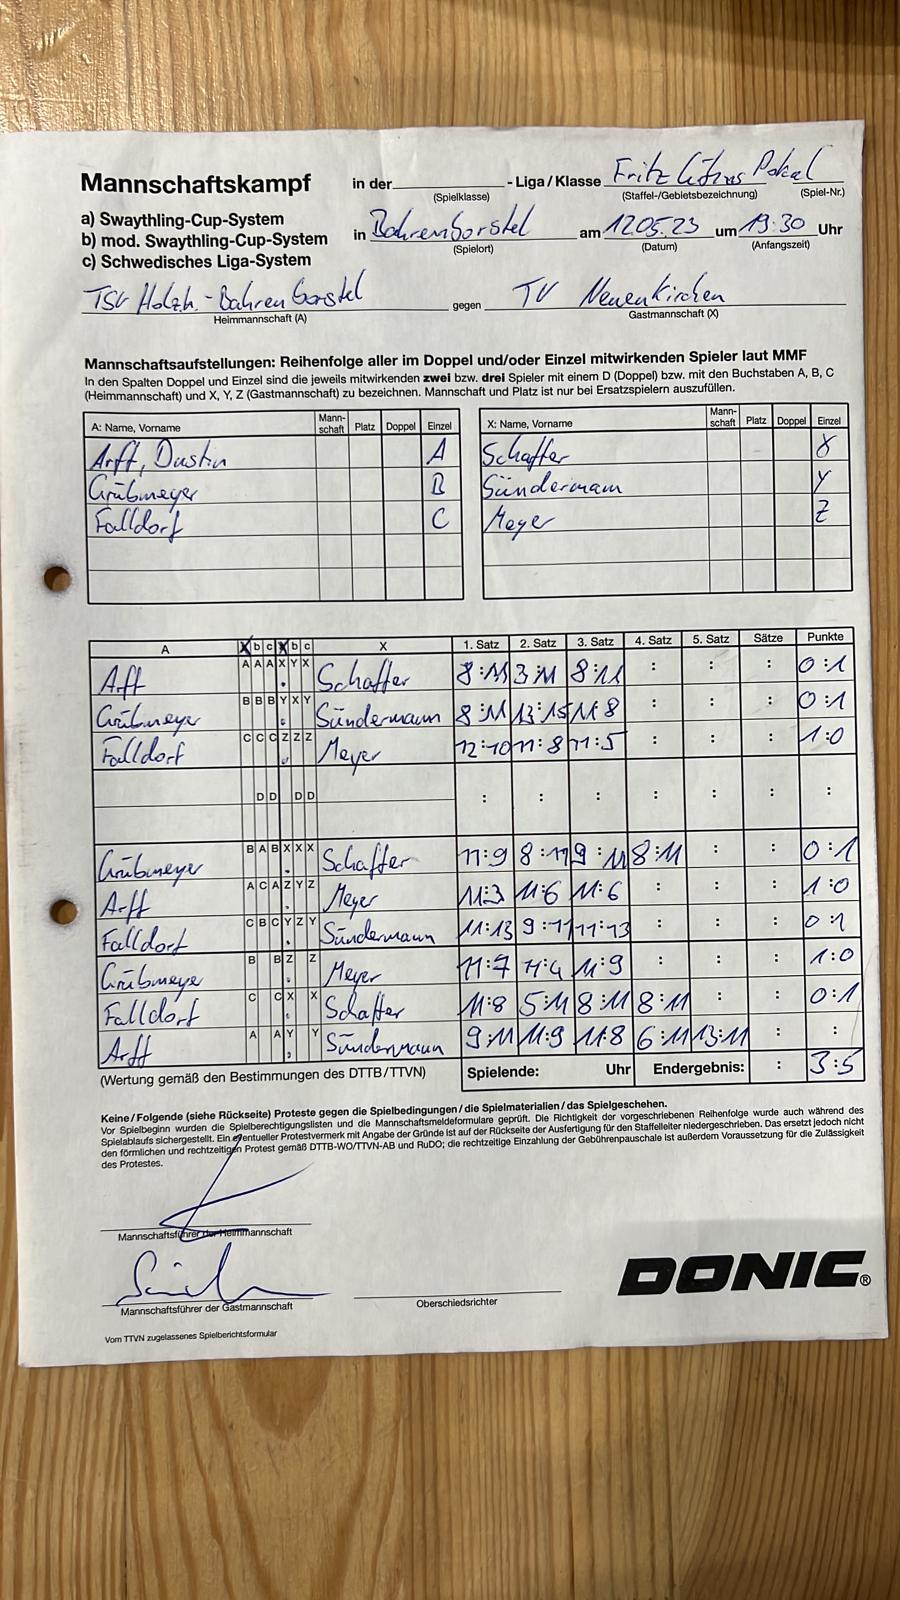 Mannschaftskampf in der - Liga / Klasse Fritz Pokal
(Spielklasse) (Staffel-/Gebietsbezeichnung) (Spiel-Nr.)
a) Swaythling-Cup-System
b) mod. Swaythling-Cup-System in Bahrenborstel am 12.05.23 um 19:30 Uhr
(Spielort) (Datum) (Anfangszeit)
c) Schwedisches Liga-System
TSV Holzh. - Bahrenborstel gegen TV Neuenkirchen
Heimmannschaft (A) Gastmannschaft (X)
Mannschaftsaufstellungen: Reihenfolge aller im Doppel und/oder Einzel mitwirkenden Spieler laut MMF
In den Spalten Doppel und Einzel sind die jeweils mitwirkenden zwei bzw. drei Spieler mit einem D (Doppel) bzw. mit den Buchstaben A, B, C
(Heimmannschaft) und X, Y, Z (Gastmannschaft) zu bezeichnen. Mannschaft und Platz ist nur bei Ersatzspielern auszufüllen.
A: Name, Vorname Mann-schaft Platz Doppel Einzel X: Name, Vorname Mann-schaft Platz Doppel Einzel
Arft, Dustin A Schaffer X
Grübmeyer B Sündermann Y
Falldorf C Meyer Z
A X b c X b c X 1. Satz 2. Satz 3. Satz 4. Satz 5. Satz Sätze Punkte
Arft A A A X Y X Schaffer 8:11 3:11 8:11 : : : 0:1
Grübmeyer B B B Y X Y Sündermann 8:11 13:15 11:8 : : : 0:1
Falldorf C C C Z Z Z Meyer 12:10 11:8 11:5 : : : 1:0
D D D D : : : : : : :
Grübmeyer B A B X X X Schaffer 11:9 8:11 9:11 8:11 : : 0:1
Arft A C A Z Y Z Meyer 11:3 11:6 11:6 : : : 1:0
Falldorf C B C Y Z Y Sündermann 11:13 9:11 11:13 : : : 0:1
Grübmeyer B B Z Z Meyer 11:7 11:4 11:9 : : : 1:0
Falldorf C C X X Schaffer 11:8 5:11 8:11 8:11 : : 0:1
Arft A A Y Y Sündermann 9:11 11:9 11:8 6:11 13:11 : :
(Wertung gemäß den Bestimmungen des DTTB/TTVN) Spielende: Uhr Endergebnis: : 3:5
Keine / Folgende (siehe Rückseite) Proteste gegen die Spielbedingungen / die Spielmaterialien / das Spielgeschehen.
Vor Spielbeginn wurden die Spielberechtigungslisten und die Mannschaftsmeldeformulare geprüft. Die Richtigkeit der vorgeschriebenen Reihenfolge wurde auch während des
Spielablaufs sichergestellt. Ein eventueller Protestvermerk mit Angabe der Gründe ist auf der Rückseite der Ausfertigung für den Staffelleiter niedergeschrieben. Das ersetzt jedoch nicht
den förmlichen und rechtzeitigen Protest gemäß DTTB-WO/TTVN-AB und RuDO; die rechtzeitige Einzahlung der Gebührenpauschale ist außerdem Voraussetzung für die Zulässigkeit
des Protestes.
Mannschaftsführer der Heimmannschaft
DONIC®
Mannschaftsführer der Gastmannschaft Oberschiedsrichter
Vom TTVN zugelassenes Spielberichtsformular